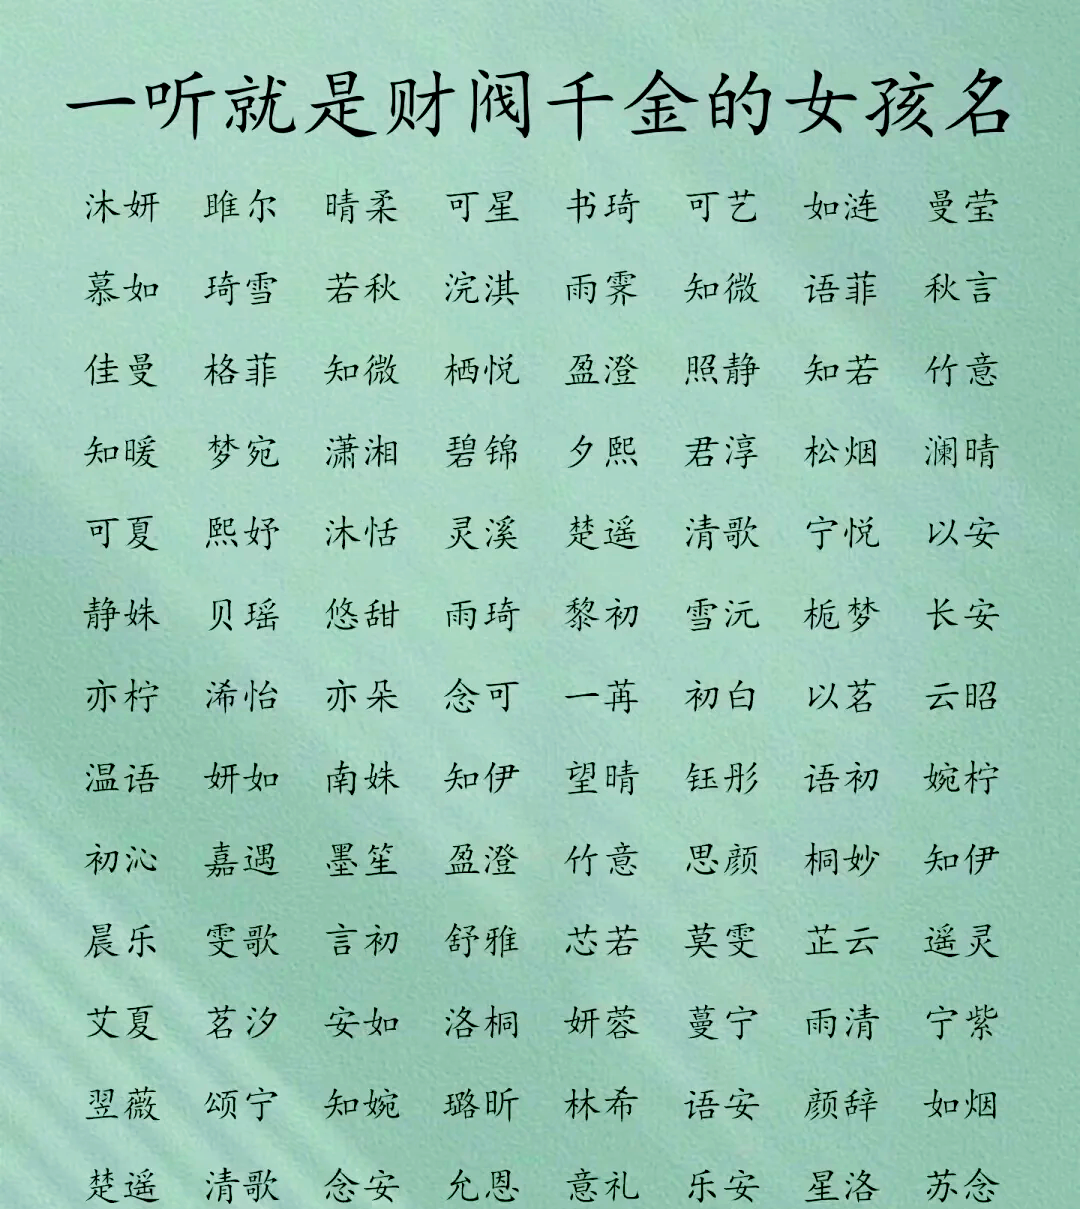 一听就是财阀千金的女孩名
沐妍 雎尔 晴柔 可星 书琦 可艺 如涟 曼莹
慕如 琦雪 若秋 浣淇 雨霁 知微 语菲 秋言
佳曼 格菲 知微 栖悦 盈澄 照静 知若 竹意
知暖 梦宛 潇湘 碧锦 夕熙 君淳 松烟 澜晴
可夏 熙妤 沐恬 灵溪 楚遥 清歌 宁悦 以安
静姝 贝瑶 悠甜 雨琦 黎初 雪沅 栀梦 长安
亦柠 浠怡 亦朵 念可 一苒 初白 以茗 云昭
温语 妍如 南姝 知伊 望晴 钰彤 语初 婉柠
初沁 嘉遇 墨笙 盈澄 竹意 思颜 桐妙 知伊
晨乐 雯歌 言初 舒雅 芯若 莫雯 芷云 遥灵
艾夏 茗汐 安如 洛桐 妍蓉 蔓宁 雨清 宁紫
翌薇 颂宁 知婉 璐昕 林希 语安 颜辞 如烟
楚遥 清歌 念安 允恩 意礼 乐安 星洛 苏念